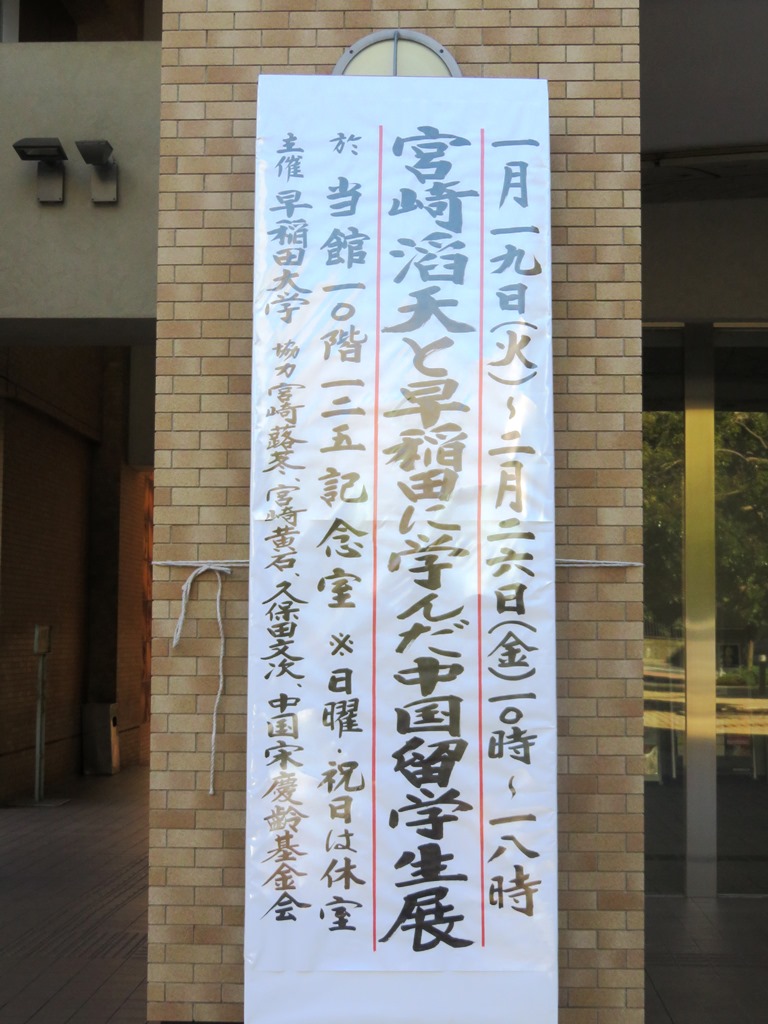 一月一九日(火)~二月二六日(金)一〇時~一八時
宮崎滔天と早稲田に学んだ中国留学生展
於 当館一〇階一二五記念室 ※日曜・祝日は休室
主催 早稲田大学 協力 宮崎蕗苳、宮崎黄石、久保田文次、中国宋慶齢基金会